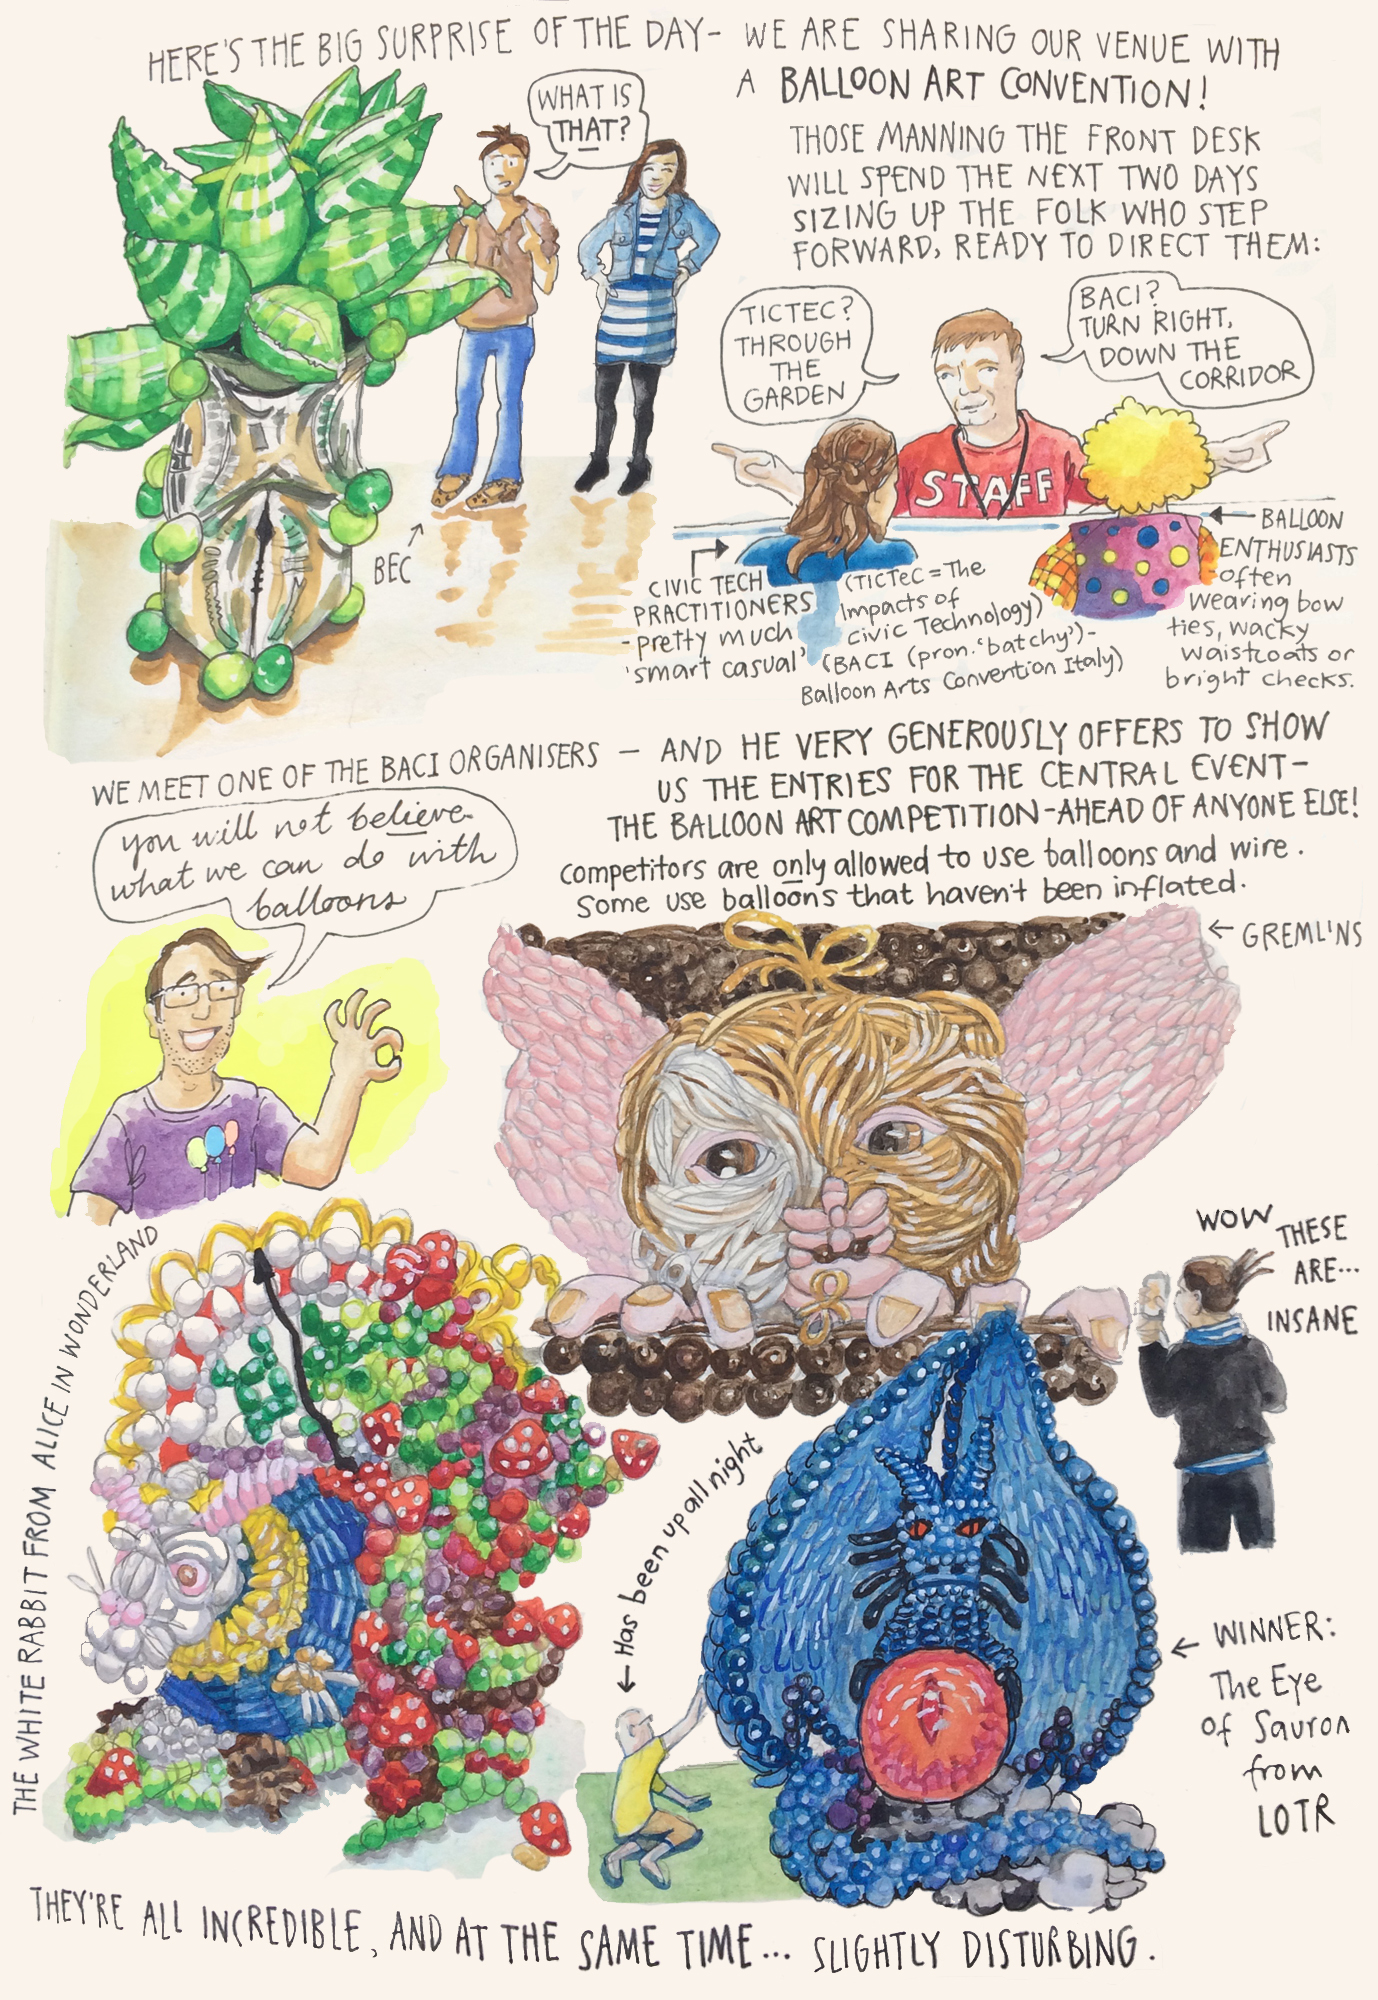 HERE'S THE BIG SURPRISE OF THE DAY- WE ARE SHARING OUR VENUE WITH
A BALLOON ART CONVENTION!
WHAT IS
THAT?
THOSE MANNING THE FRONT DESK
WILL SPEND THE NEXT TWO DAYS
SIZING UP THE FOLK WHO STEP
FORWARD, READY TO DIRECT THEM:
TICTEC?
THROUGH
THE
GARDEN
BACI?
TURN RIGHT,
DOWN THE
CORRIDOR
STAFF
BEC
CIVIC TECH
PRACTITIONERS
-pretty much
'smart casual'
(TICTeC = The
Impacts of
Civic Technology)
(BACI (pron. 'batchy')-
Balloon Arts Convention Italy)
BALLOON
ENTHUSIASTS
often
wearing bow
ties, wacky
waistcoats or
bright checks.
WE MEET ONE OF THE BACI ORGANISERS - AND HE VERY GENEROUSLY OFFERS TO SHOW
US THE ENTRIES FOR THE CENTRAL EVENT-
THE BALLOON ART COMPETITION-AHEAD OF ANYONE ELSE!
you will not believe
what we can do with
balloons
competitors are only allowed to use balloons and wire.
Some use balloons that haven't been inflated.
GREMLINS
WOW THESE
ARE...
INSANE
THE WHITE RABBIT FROM ALICE IN WONDERLAND
Has been up all night
WINNER:
The Eye
of Sauron
from
LOTR
THEY'RE ALL INCREDIBLE, AND AT THE SAME TIME... SLIGHTLY DISTURBING.